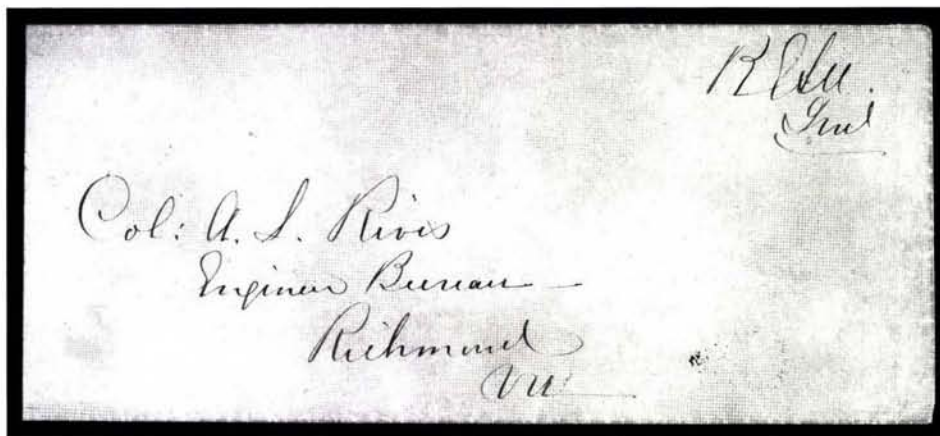 R E Lee.
Genl
Col: A. L. Rives
Engineer Bureau
Richmond
Va